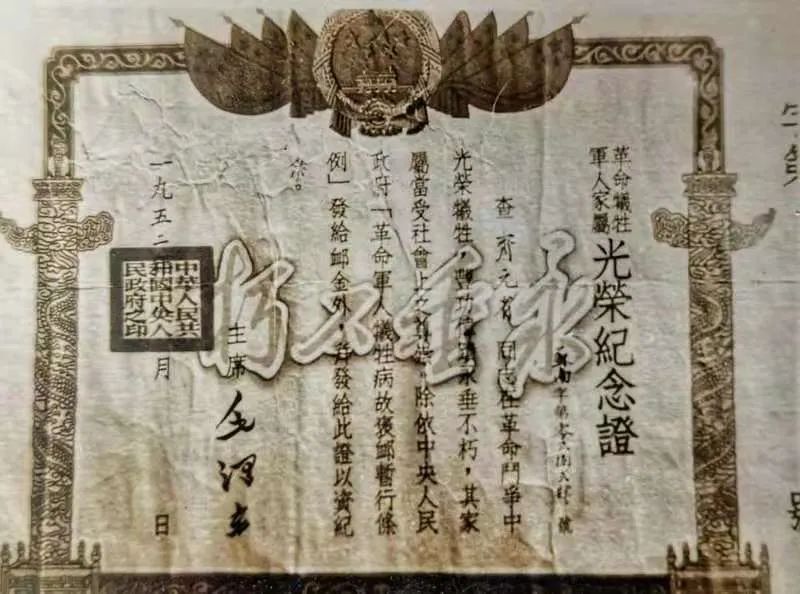 革命犧牲
軍人家屬
光榮紀念證
南字第零六 號
查 元 同志在革命鬥爭中
光榮犧牲,豐功偉績永垂不朽,其家
屬當受社會上之尊崇。除依中央人民
政府「革命軍人犧牲病故褒卹暫行條
例」發給卹金外,並發給此證以資紀
念。
永垂不朽
主席 毛澤東
一九五二年 月 日
中華人民共
和國中央人
民政府之印